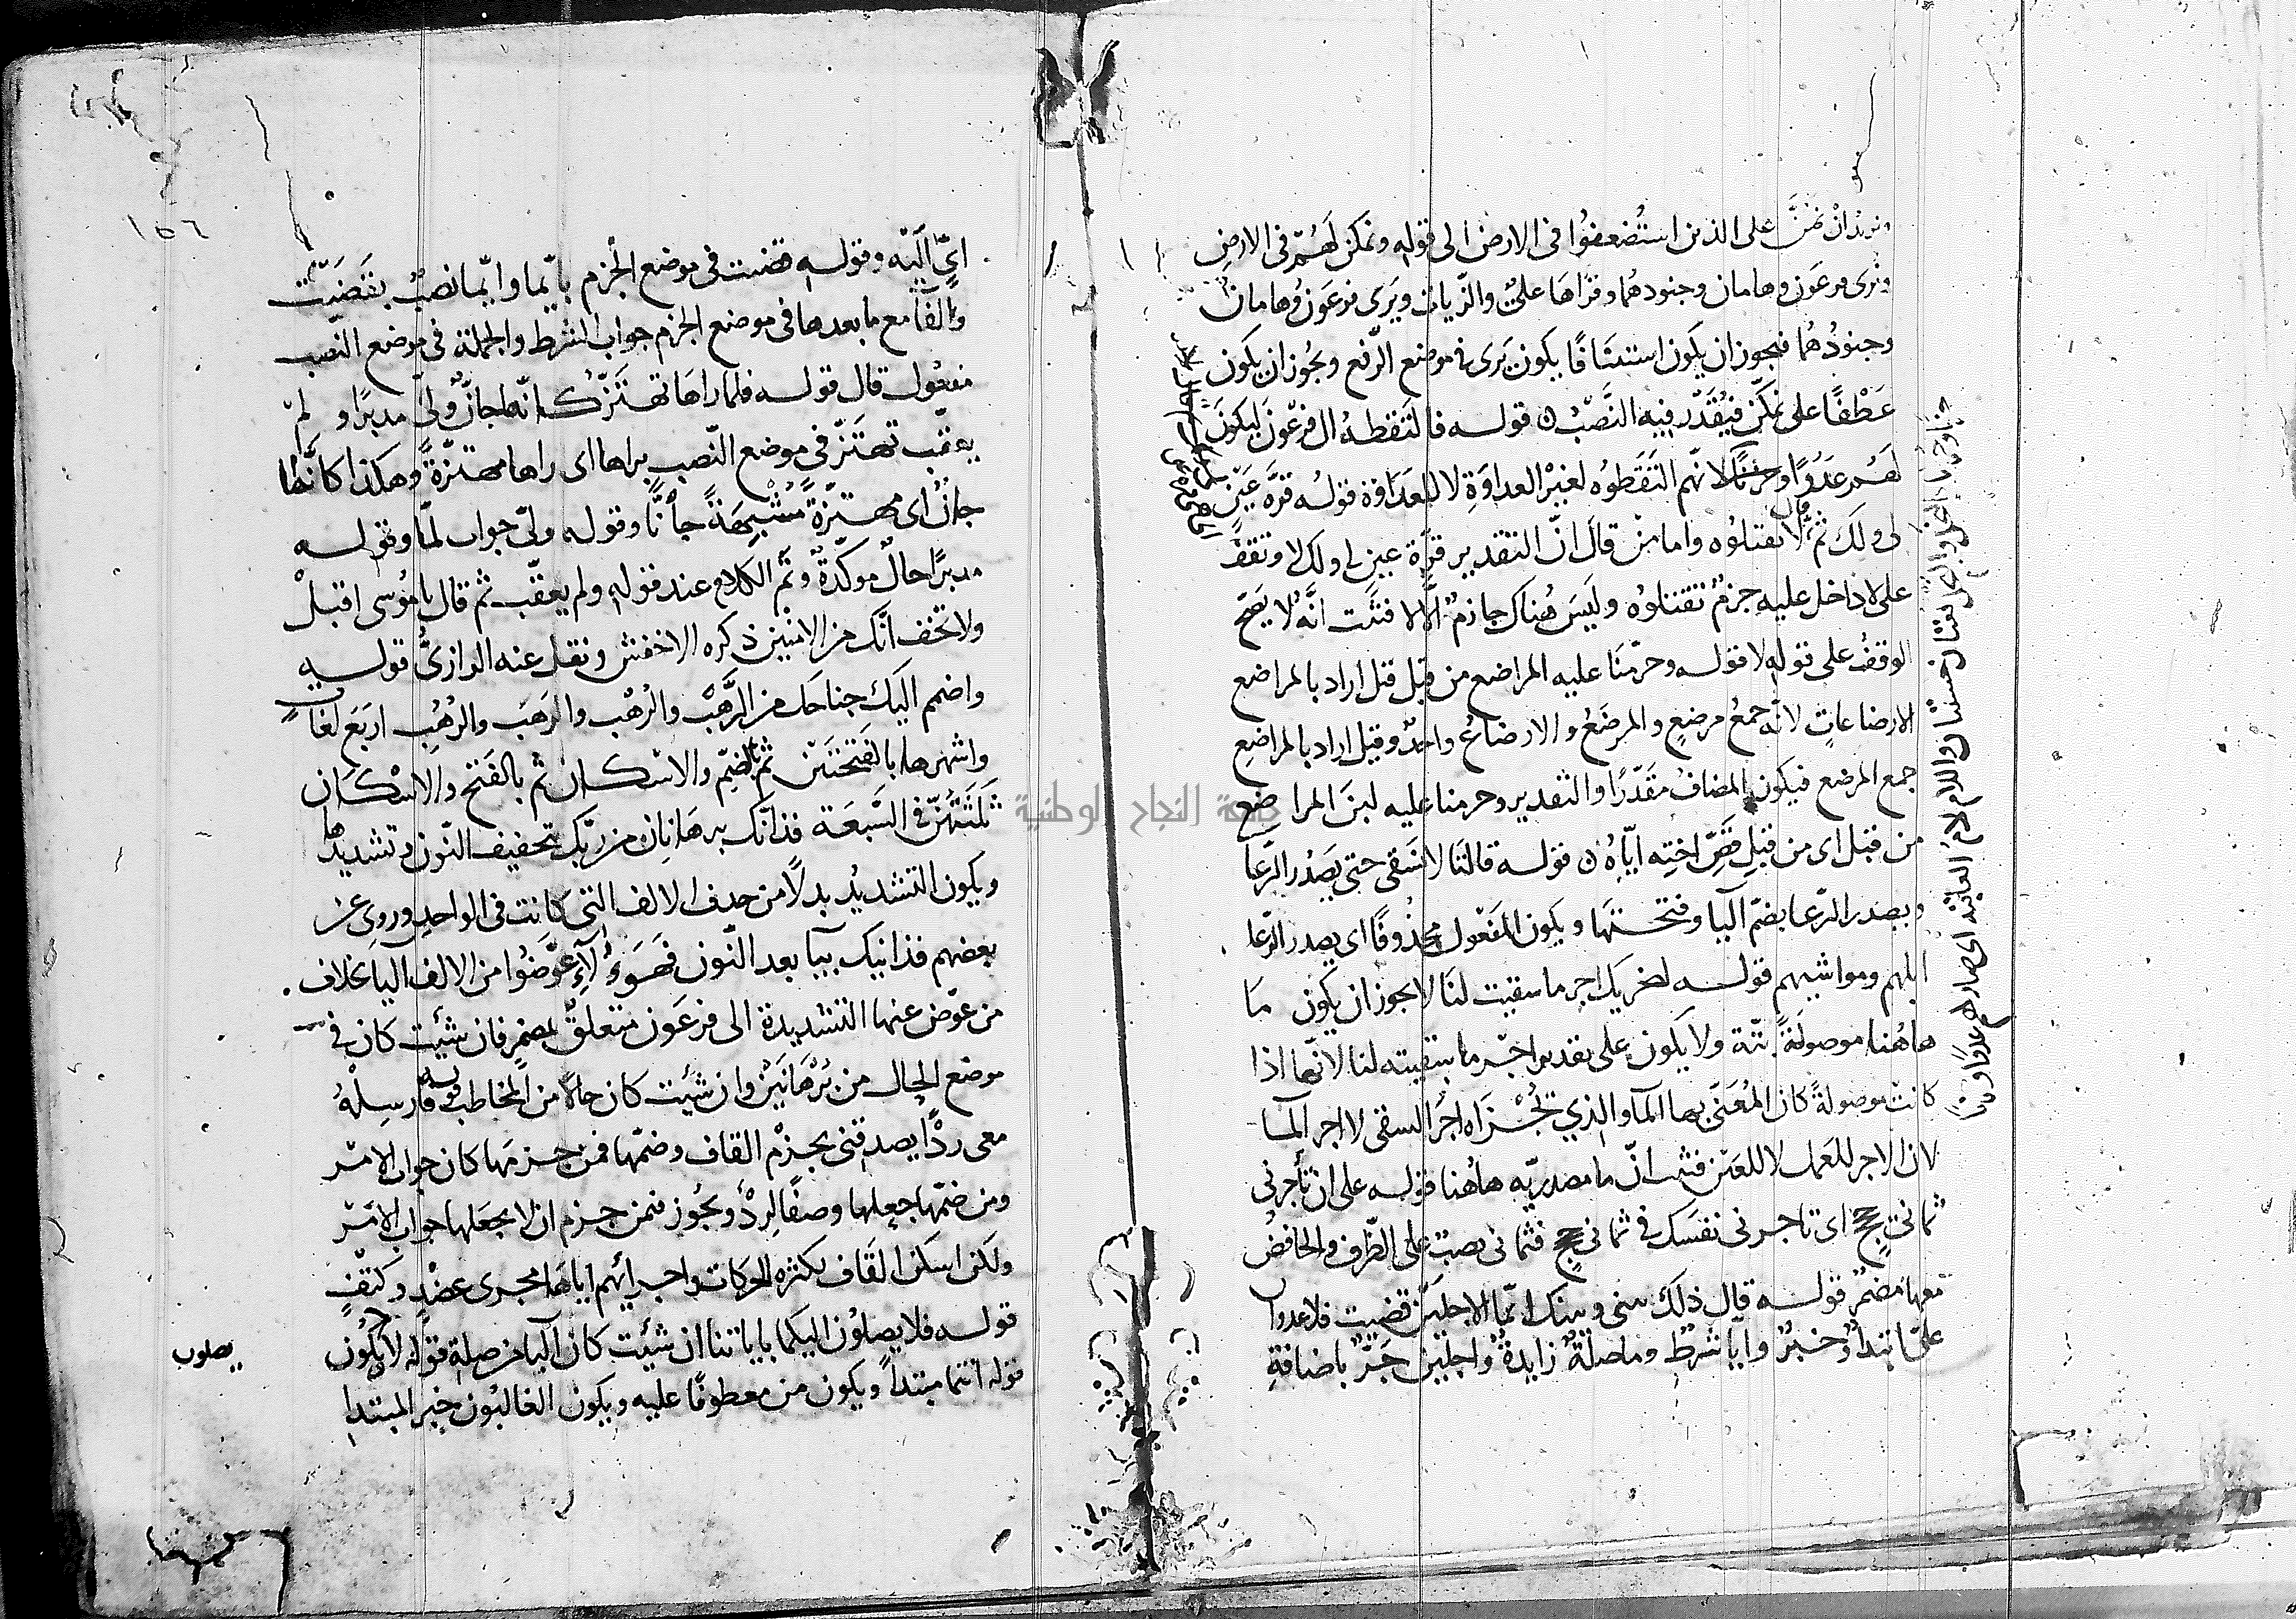 ونريد أن نمن على الذين استضعفوا في الارض الى قوله ونمكن لهم في الارض
ونرى فرعون وهامان وجنودهما وقراها على والزيات ويرى فرعون وهامان
وجنودهما فيجوز ان يكون استئنافا يكون يرى في موضع الرفع ويجوز ان يكون
عطفا على نمكن فيقدر فيه النصب ن قوله فالتقطه ال فرعون ليكون
لهم عدوا وحزنا لانهم التقطوه لغير العداوة لا للعداوة قوله قرة عين
لي ولك ثم قال لا تقتلوه واما من قال ان التقدير قرة عين لي ولك لا وتقف
على لا داخل عليه جزم تقتلوه وليس هناك جازم الا لا فثبت انه لا يصح
الوقف على قوله لا قوله وحرمنا عليه المراضع من قبل قيل اراد بالمراضع
الارضاعات لانه جمع مرضع والمرضع والارضاع واحد وقيل اراد بالمراضع
جمع المرضع فيكون المضاف مقدرا والتقدير وحرمنا عليه لبن المراضع
من قبل اى من قبل قص اخته اياه ن قوله قالتا لا نسقى حتى يصدر الرعا
ويصدر الرعا بضم اليا وفتحتها ويكون المفعول محذوفا اى يصدر الرعا
ابلهم ومواشيهم قوله لجزيك اجر ما سقيت لنا لا يجوز ان يكون ما
هاهنا موصولة بتة ولا يكون على تقدير اجر ما سقيته لنا لانها اذا
كانت موصولة كان المعنى بها الما والذي تجزاه اجر السقى لا اجر الما
لان الاجر للعمل لا للعين فثبت ان ما مصدريه هاهنا قوله على ان تأجرنى
ثمانى حجج اى تاجرنى نفسك في ثمانى حجج فثمانى نصب على الظرف والخافض
معها مضمر قوله قال ذلك بينى وبينك ايما الاجلين قضيت فلا عدوان
على ابتدا وخبر وايا شرط وما صلة زايدة واجلين جر باضافة
اى اليه وقوله قضيت في موضع الجزم بايما وايما نصب بقضيت
والفا مع ما بعدها في موضع الجزم جواب الشرط والجملة في موضع النصب
مفعول قال قوله فلما راها تهتز كانها جان ولى مدبرا ولم
يعقب تهتز في موضع النصب براها اى راها مهتزة وهكذا كانها
جان اى مهتزة مشبهة جانا وقوله ولى جواب لما وقوله
مدبرا حال موكدة وتم الكلام عند قوله ولم يعقب ثم قال يا موسى اقبل
ولا تخف انك من الامنين ذكره الاخفش ونقل عنه الرازى قوله
واضمم اليك جناحك من الرهب والرهب والرهب والرهب اربع لغات
واشهرها بالفتحتين ثم بالضم والاسكان ثم بالفتح والاسكان
ثلثتهن في السبعة فذانك برهانان من ربك بتخفيف النون وتشديدها
ويكون التشديد بدلا من حذف الالف التى كانت في الواحد وروى عن
بعضهم فذانيك بيا بعد النون فهولاء عوضوا من الالف اليا بخلاف
من عوض عنها التشديدة الى فرعون متعلق بمضمر فان شئت كان في
موضع الحال من برهانين وان شئت كان حالا من المخاطب قوله فارسله
معى ردا يصدقنى بجزم القاف وضمها فمن جزمها كان جواب الامر
ومن ضمها جعلها وصفا لردء ويجوز فمن جزم ان لا يجعلها جواب الامر
ولكن اسكن القاف لكثرة الحركات واجرائهم اياها مجرى عضد وكتف
قوله فلا يصلون اليكما باياتنا ان شئت كان اليا من صلة قوله لا يكون
يصلون
قوله انتما مبتدا ويكون من معطوفا عليه ويكون الغالبون خبر المبتدا
جامعة النجاح الوطنية
١٥٦